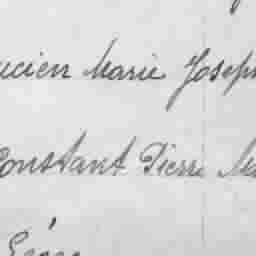 ucien Marie Joseph
Constant Pierre